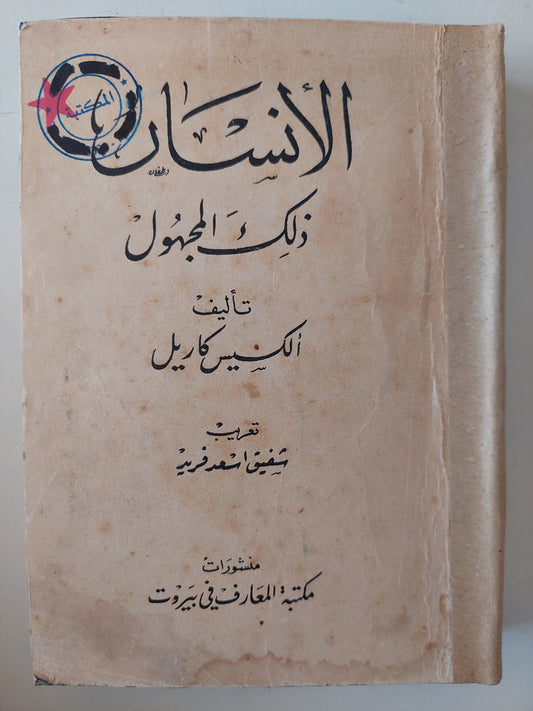 الأنسان
ذلك المجهول
تأليف
ألكسيس كاريل
تعريب
شفيق اسعد فريد
منشورات
مكتبة المعارف في بيروت
المكتبة